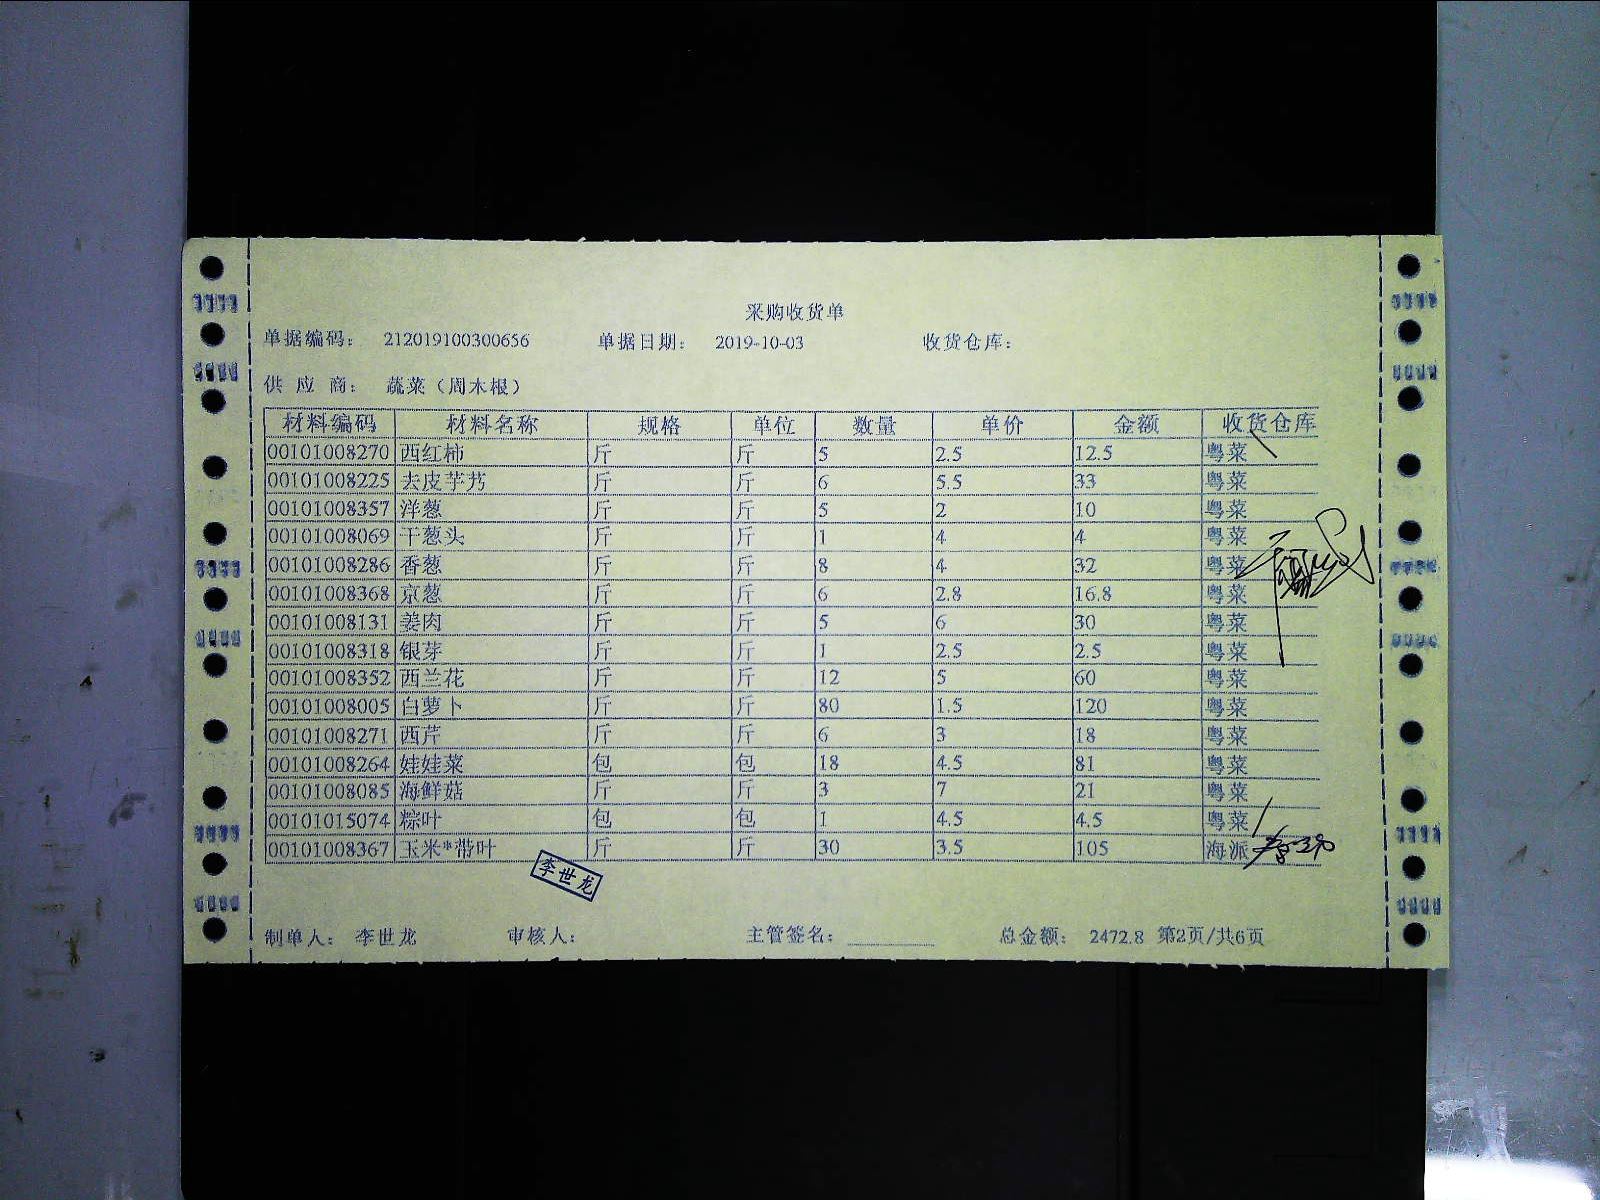 采购收货单
单据编码： 212019100300656 单据日期： 2019-10-03 收货仓库：
供 应 商： 蔬菜（周木根）
材料编码 材料名称 规格 单位 数量 单价 金额 收货仓库
00101008270 西红柿 斤 斤 5 2.5 12.5 粤菜
00101008225 去皮芋艿 斤 斤 6 5.5 33 粤菜
00101008357 洋葱 斤 斤 5 2 10 粤菜
00101008069 干葱头 斤 斤 1 4 4 粤菜
00101008286 香葱 斤 斤 8 4 32 粤菜
00101008368 京葱 斤 斤 6 2.8 16.8 粤菜
00101008131 姜肉 斤 斤 5 6 30 粤菜
00101008318 银芽 斤 斤 1 2.5 2.5 粤菜
00101008352 西兰花 斤 斤 12 5 60 粤菜
00101008005 白萝卜 斤 斤 80 1.5 120 粤菜
00101008271 西芹 斤 斤 6 3 18 粤菜
00101008264 娃娃菜 包 包 18 4.5 81 粤菜
00101008085 海鲜菇 斤 斤 3 7 21 粤菜
00101015074 粽叶 包 包 1 4.5 4.5 粤菜
00101008367 玉米*带叶 斤 斤 30 3.5 105 海派
李世龙
制单人： 李世龙 审核人： 主管签名： 总金额： 2472.8 第2页/共6页